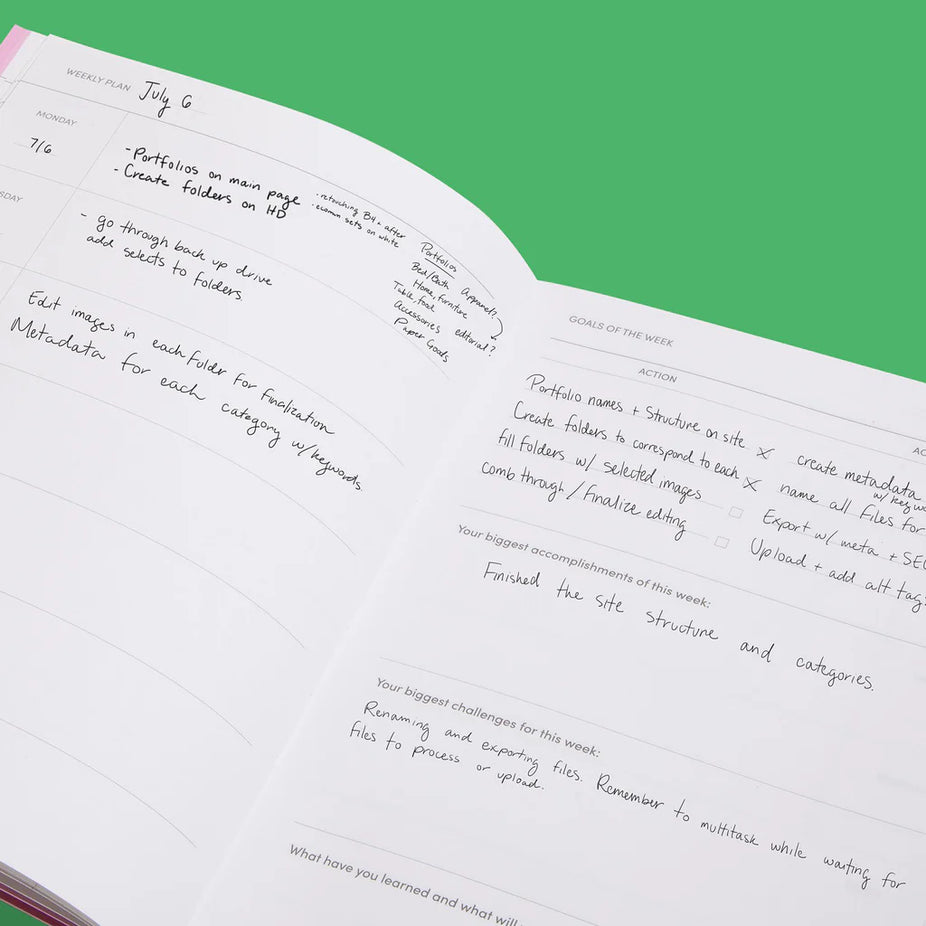 WEEKLY PLAN July 6
MONDAY
7/6
- Portfolios on main page
- Create folders on HD
· retouching B4 + after
· ecomm sets on white
Portfolios
Bed/Bath Apparel?
Home, furniture
Table, food
Accessories editorial?
Paper Goods
SDAY
- go through back up drive
add selects to folders
Edit images in each Folder for finalization
Metadata for each category w/keywords
GOALS OF THE WEEK
ACTION
Portfolio names + Structure on site X
Create folders to correspond to each X
fill folders w/ selected images
comb through / finalize editing
AC
create metadata
w/ keywo
name all files for
Export w/ meta + SEO
Upload + add alt tags
Your biggest accomplishments of this week:
Finished the site structure and categories.
Your biggest challenges for this week:
Renaming and exporting files. Remember to multitask while waiting for
files to process or upload.
What have you learned and what will